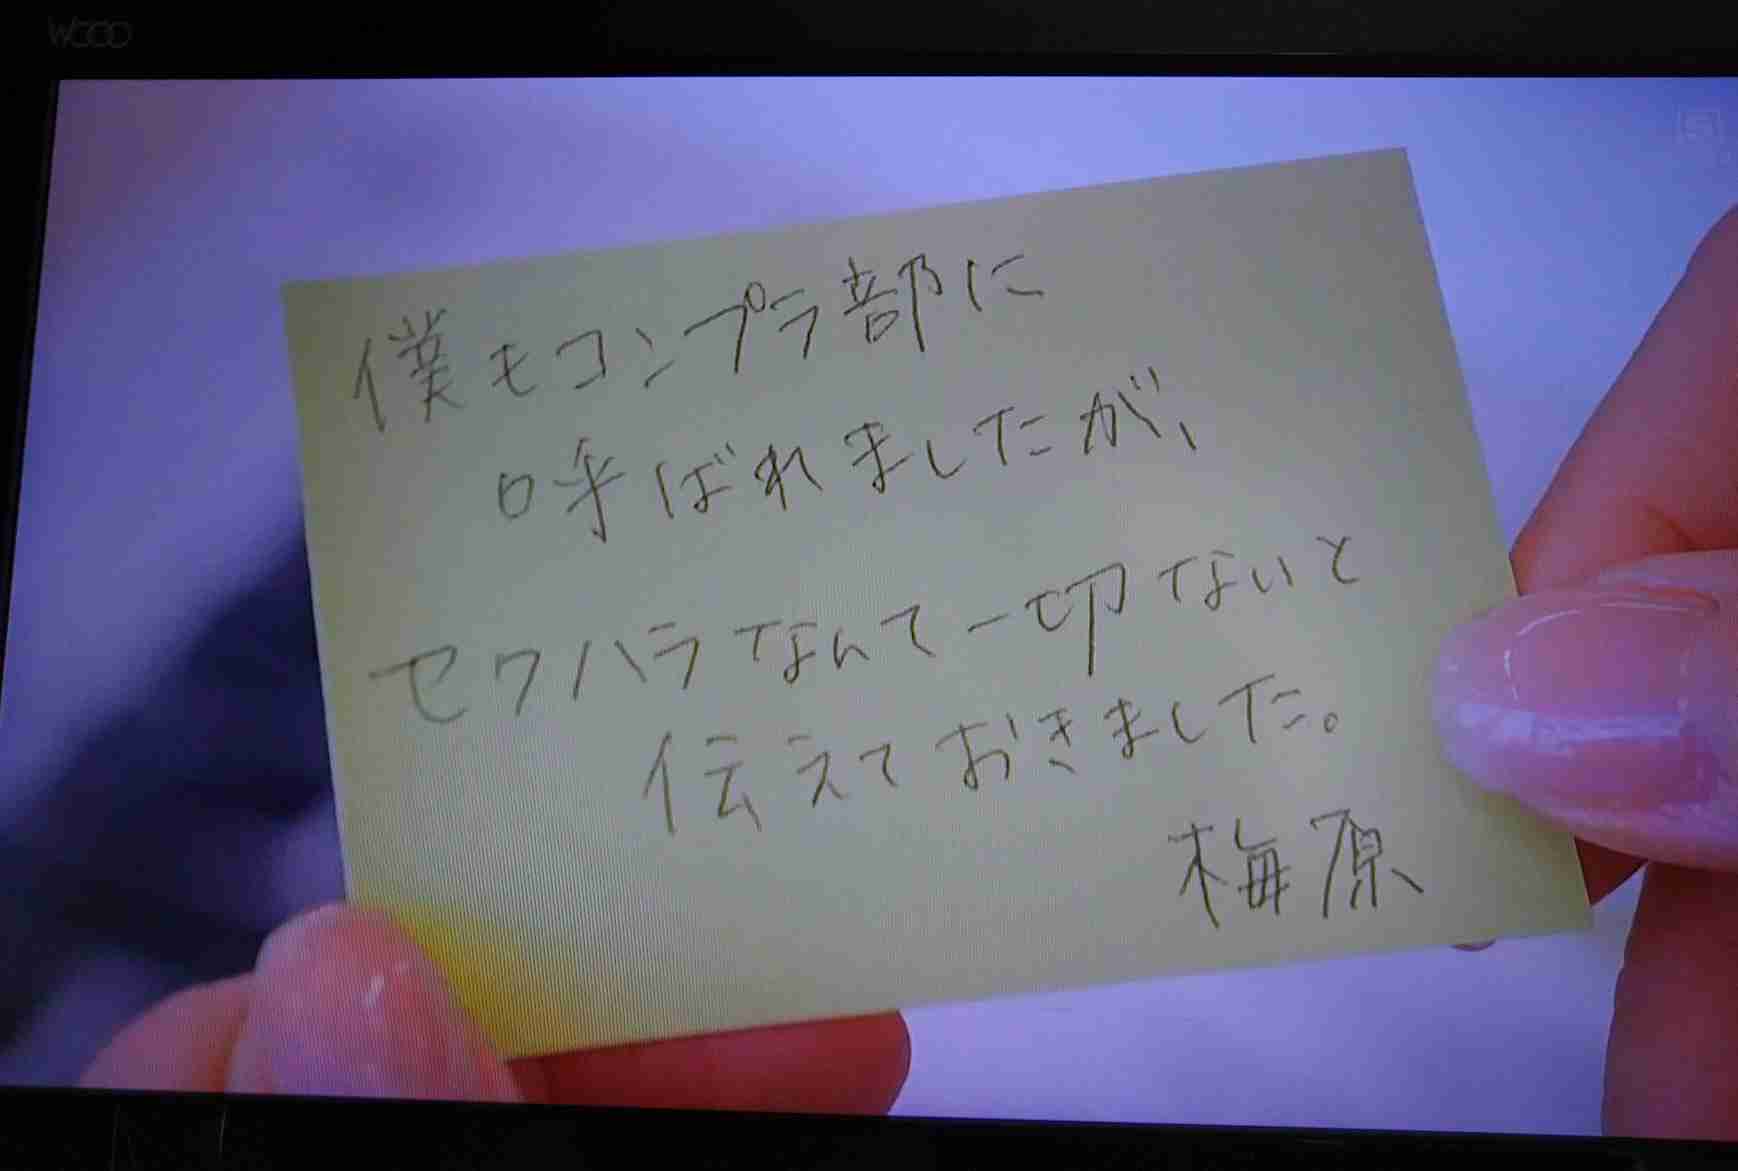 Wooo
僕もコンプラ部に
呼ばれましたが、
セクハラなんて一切ないと
伝えておきました。
梅原